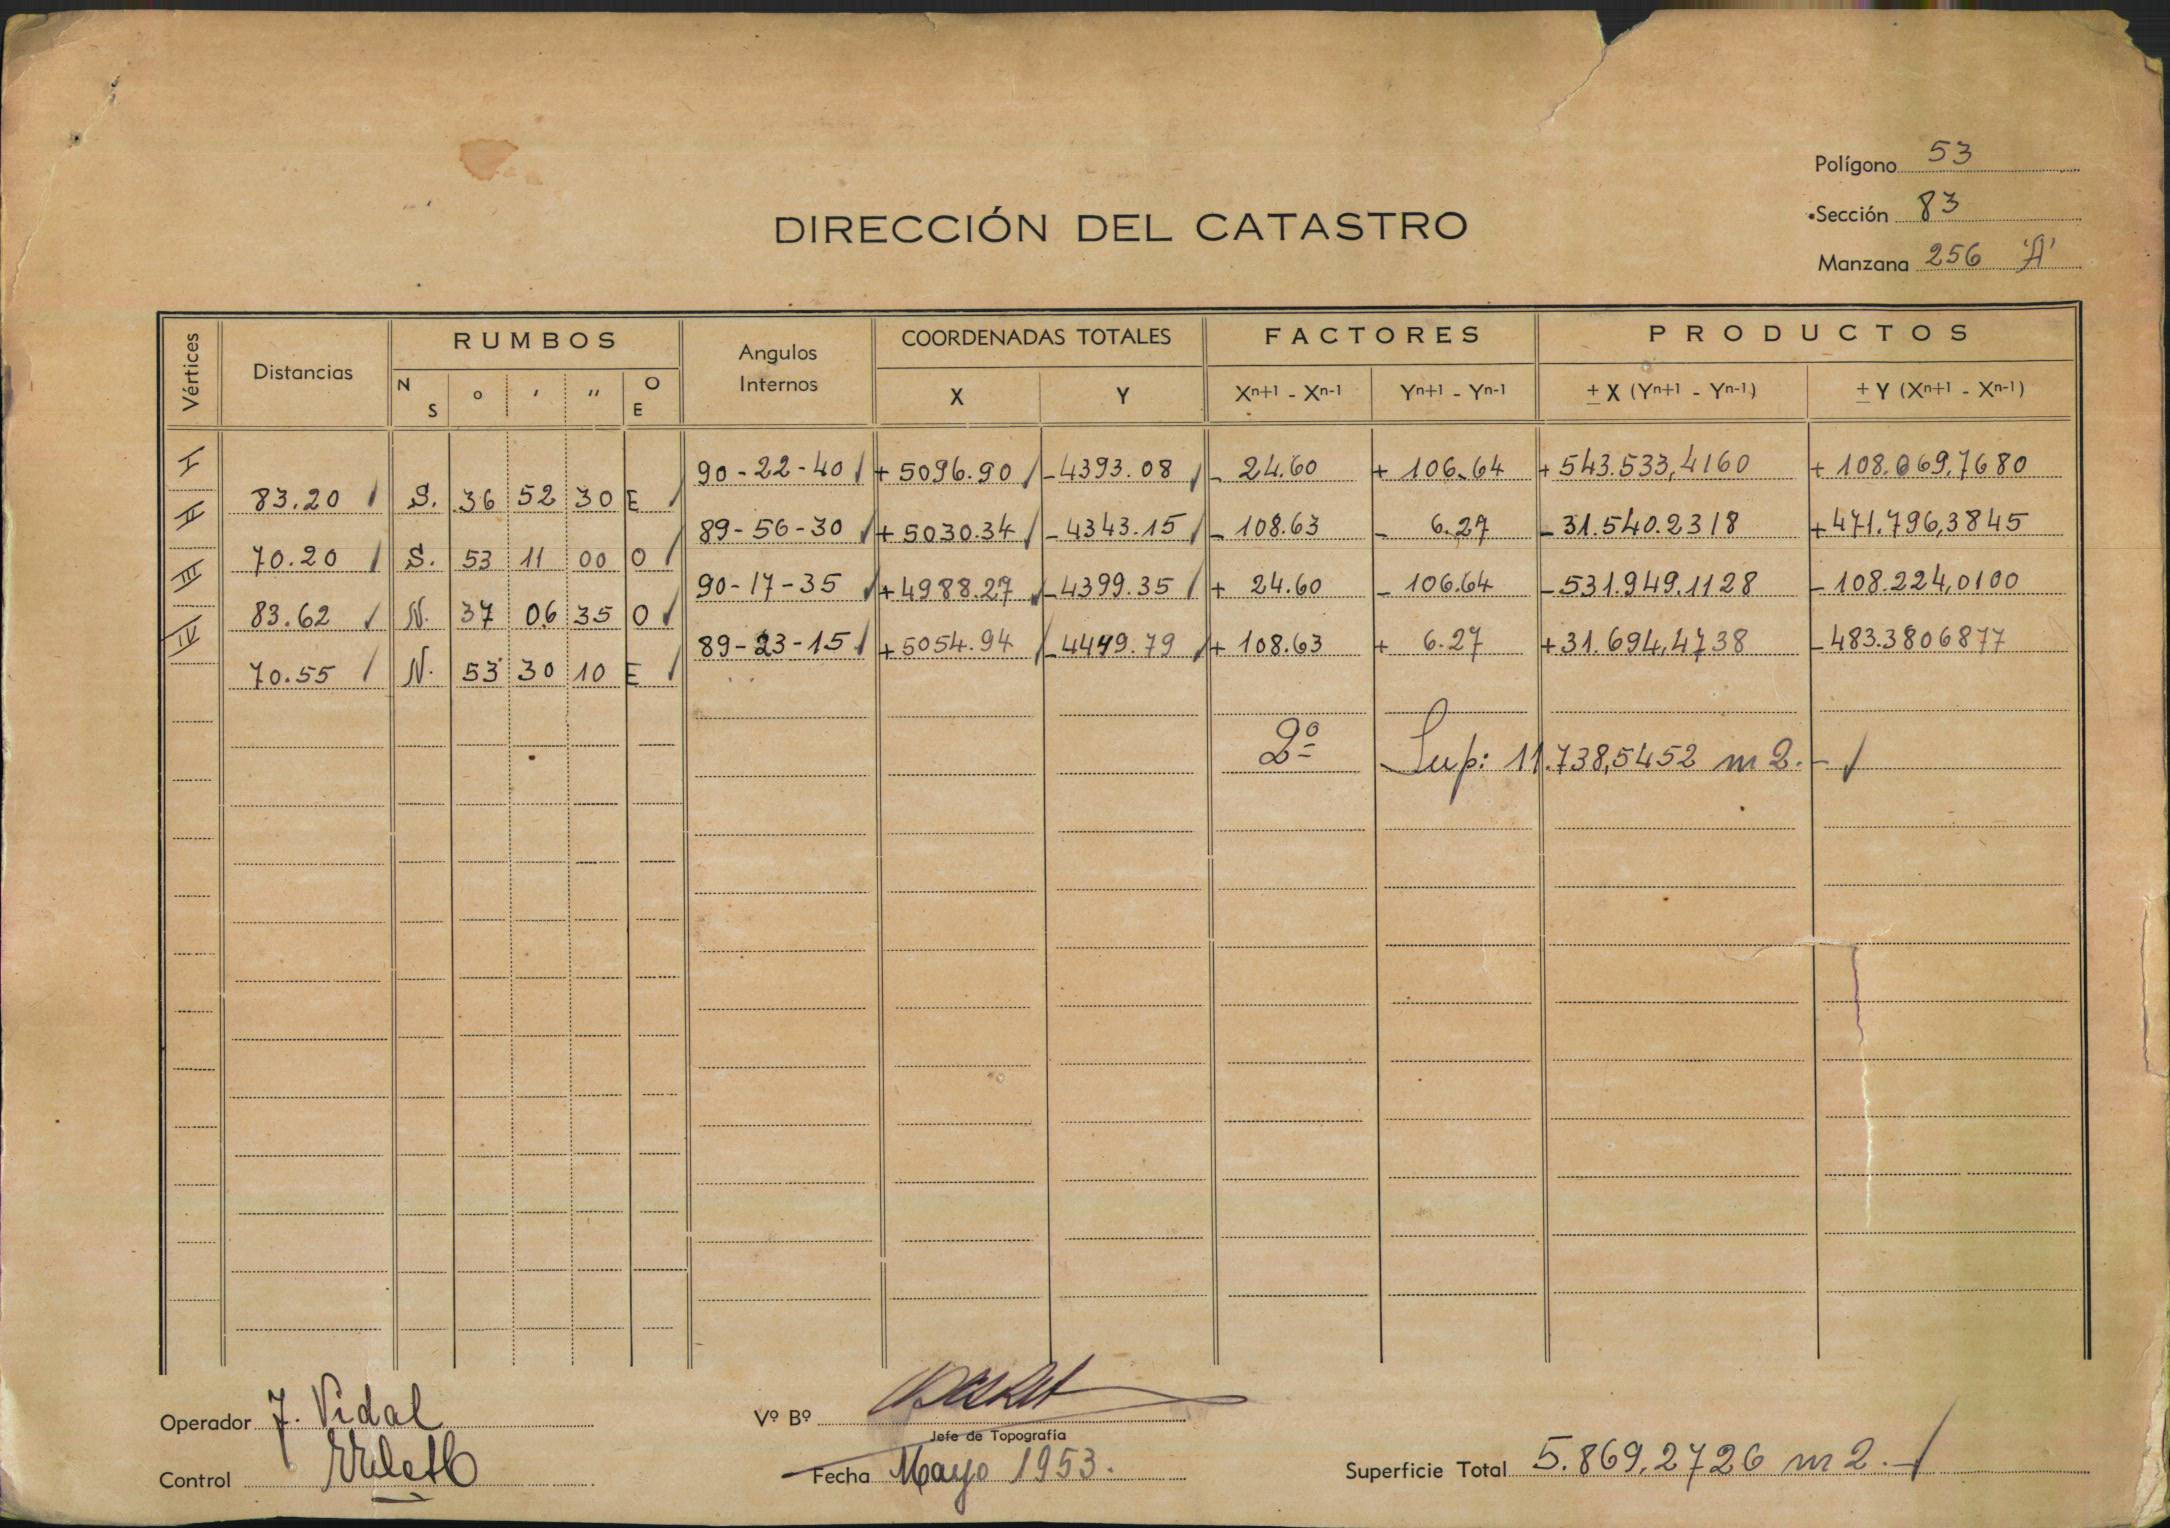 Polígono 53
Sección 83
Manzana 256 'A'
DIRECCIÓN DEL CATASTRO
Vértices Distancias RUMBOS Angulos Internos COORDENADAS TOTALES FACTORES PRODUCTOS
N S o ′ ″ O E X Y Xn+1 - Xn-1 Yn+1 - Yn-1 ± X (Yn+1 - Yn-1) ± Y (Xn+1 - Xn-1)
I 90-22-40 +5096.90 -4393.08 - 24.60 + 106.64 +543.533,4160 +108.069,7680
83.20 S. 36 52 30 E
II 89-56-30 +5030.34 -4343.15 - 108.63 - 6.27 -31.540.2318 +471.796,3845
70.20 S. 53 11 00 O
III 90-17-35 +4988.27 -4399.35 + 24.60 - 106.64 -531.949.1128 -108.224,0100
83.62 N. 37 06 35 O
IV 89-23-15 +5054.94 -4449.79 + 108.63 + 6.27 +31.694,4738 -483.3806877
70.55 N. 53 30 10 E
2º Sup: 11.738,5452 m2.-
Operador J. Vidal Vº Bº
Jefe de Topografia
Control Fecha Mayo 1953. Superficie Total 5.869,2726 m2.-